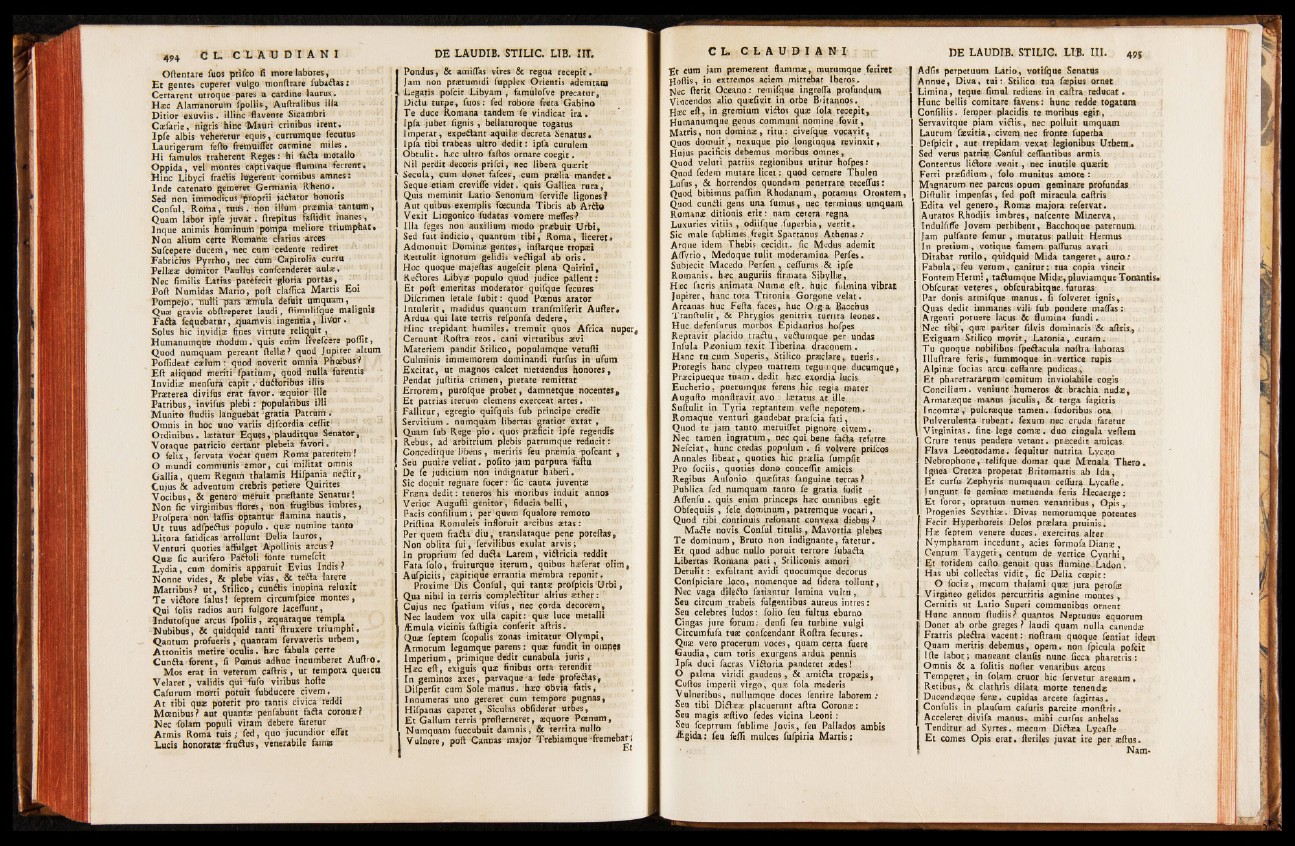 494 CL. CLAUDIANI
Oſtentare ſuos priſco ſi more labores,
Et gentes cuperet vulgo monſtrare ſubactas:
Certarent utroque pares a cardine laurus.
Hæc Alamanorum ſpoliis, Auſtralibus illa
Ditior exuviis. illinc flavente Sicambri
Cæſarie, nigris hinc Mauri crinibus irent.
Ipſe albis veheretur equis, currumque ſecutus
Laurigerum feſto fremuiſſet carmine miles.
Hi famulos traherent Reges: hi facta metallo
Oppida, vel montes captivaque flumina ferrent.
Hinc Libyci fractis lugerent cornibus amnes:
Inde catenato gemeret Germania Rheno.
Sed non immodicus proprii jactator honoris
Conſul, Roma, tuus. non illum præmia tantum,
Quam labor ipſe juvat. ſtrepitus faſtidit inanes,
Inque animis hominum pompa meliore triumphat.
Non alium certe Romanæ clarius arces
Suſcepere ducem, nec cum cedente rediret
Fabricius Pyrrho, nec cum Capitolia curru
Pellææ domitor Paullus conſcenderet aulæ.
Nec ſimilis Latias patefecit gloria portas,
Poſt Numidas Mario, poſt claſſica Martis Eoi
Pompejo. nulli pars æmula defuit umquam,
Quæ gravis obſtreperet laudi, ſtimuliſque malignis
Facta ſequebatur, quamvis ingentia, livor.
Solus hic invidiæ fines virtute reliquit,
Humanumque modum. quis enim liveſcere poſſit,
Quod numquam pereant ſtellæ? quod Jupiter altum
Poſſideat cælum: quod noverit omnia Phœbus?
Eſt aliquod meriti ſpatium, quod nulla furentis
Invidiæ menſura capit. ductoribus illis
Præterea diviſus erat favor. æquior ille
Patribus, inviſus plebi: popularibus illi
Munito ſtudiis languebat gratia Patrum.
Omnis in hoc uno variis diſcordia ceſſit
Ordinibus. lætatur Eques, plauditque Senator,
Votaque patricio certant plebeia favori.
O felix, ſervata vocat quem Roma parentem!
O mundi communis amor, cui militat omnis
Gallia, quem Regum thalamis Hiſpania nectit,
Cujus & adventum crebris petiere Quirites
Vocibus, & genero meruit præſtante Senatus!
Non ſic virginibus flores, non frugibus imbres,
Proſpera non laſſis optantur flamina nautis,
Ut tuus adſpectus populo. quæ numine tanto
Litora fatidicas attollunt Delia lauros,
Venturi quoties affulget Apollinis arcus?
Quæ ſic aurifero Pactoli fonte tumeſcit
Lydia, cum domitis apparuit Evius Indis?
Nonne vides, & plebe vias, & tecta latere
Matribus? ut, Stilico, cunctis inopina reluxit
Te victore ſalus! ſeptem circumſpice montes,
Qui ſolis radios auri fulgore laceſſunt,
Indutoſque arcus ſpoliis, æquataque templa
Nubibus, & quidquid tanti ſtruxere triumphi,
Quantum profueris, quantam ſervaveris urbem,
Attonitis metire oculis. hæc fabula certe
Cuncta forent, ſi Pœnus adhuc incumberet Auſtro.
Mos erat in veterum caſtris, ut tempora quercu
Velaret, validis qui fuſo viribus hoſte
Caſurum morti potuit ſubducere civem.
At tibi quæ poterit pro tantis civica reddi
Mœnibus? aut quantæ penſabunt facta coronæ?
Nec ſolam populi vitam debere fatetur
Armis Roma tuis; ſed, quo jucundior eſſet
Lucis honoratæ fructus, venerabile famæ
DE LAUDIB. STILIC. LIB. III.
Pondus, & amiſſas vires & regna recepit.
Jam non prætumidi ſupplex Orientis ademtam
Legatis poſcit Libyam, famuloſve precatur,
Dictu turpe, ſuos: ſed robore freta Gabino
Te duce Romana tandem ſe vindicat ira.
Ipſa jubet ſignis, bellaturoque togatus
Imperat, expectant aquilæ decreta Senatus.
Ipſa tibi trabeas ultro dedit: ipſa curulem
Obtulit. hæc ultro faſtos ornare coegit.
Nil perdit decoris priſci, nec libera quærit
Secula, cum donet faſces, cum prælia mandet.
Seque etiam creviſſe videt. quis Gallica rura,
Quis meminit Latio Senonum ſerviſſe ligones?
Aut quibus exemplis fœcunda Tibris ab Arcto
Vexit Lingonico ſudatas vomere meſſes?
Illa ſeges non auxilium modo præbuit Urbi,
Sed fuit indicio, quantum tibi, Roma, liceret.
Admonuit Dominæ gentes, inſtarque tropæi
Rettulit ignorum gelidis vectigal ab oris.
Hoc quoque majeſtas augeſcit plena Quirini,
Rectores Libyæ populo quod judice pallent:
Et poſt emeritas moderator quiſque ſecures
Diſcrimen letale ſubit: quod Pœnus arator
Intulerit, madidus quantum tranſmiſerit Auſter.
Ardua qui late terris reſponſa dedere,
Hinc trepidant humiles. tremuit quos Africa nuper,
Cernunt Roſtra reos. cani virtutibus ævi
Materiem pandit Stilico, populumque vetuſti
Culminis immemorem dominandi rurſus in uſum
Excitat, ut magnos calcet metuendus honores,
Pendat juſtitia crimen, pietate remittat
Errorem, puroſque probet, damnetque nocentes,
Et patrias iterum clemens exerceat artes.
Fallitur, egregio quiſquis ſub principe credit
Servitium. numquam libertas gratior extat,
Quam ſub Rege pio. quos præficit ipſe regendis
Rebus, ad arbitrium plebis patrumque reducit:
Conceditque libens, meritis ſeu præmia poſcant,
Seu punire velint. poſito jam purpura faſtu
De ſe judicium non indignatur haberi.
Sic docuit regnare ſocer: ſic cauta juventæ
Fræna dedit: teneros his moribus induit annos
Verior Auguſti genitor, fiducia belli,
Pacis conſilium; per quem ſqualore remoto
Priſtina Romuleis infloruit arcibus ætas:
Per quem fracta diu, translataque pene poteſtas,
Non oblita ſui, ſervilibus exulat arvis;
In proprium ſed ducta Larem, victricia reddit
Fata ſolo, fruiturque iterum, quibus hæſerat olim,
Auſpiciis, capitique errantia membra reponit.
Proxime Dis Conſul, qui tantæ proſpicis Urbi,
Qua nihil in terris complectitur altius æther:
Cujus nec ſpatium viſus, nec corda decorem,
Nec laudem vox ulla capit: quæ luce metalli
Æmula vicinis faſtigia conſerit aſtris.
Quæ ſeptem ſcopulis zonas imitatur Olympi,
Armorum legumque parens: quæ fundit in omnes
Imperium, primique dedit cunabula juris.
Hæc eſt, exiguis quæ finibus orta tetendit
In geminos axes, parvaque a ſede profectas,
Diſperſit cum Sole manus. hæc obvia fatis,
Innumeras uno gereret cum tempore pugnas,
Hiſpanas caperet, Siculas obſideret urbes,
Et Gallum terris proſterneret, æquore Pœnum,
Numquam ſuccubuit damnis, & territa nullo
Vulnere, poſt Cannas major Trebiamque fremebat:
Et
CL. CLAUDIANI
Et cum jam premerent flammæ, murumque feriret
Hoſtis, in extremos aciem mittebat Iberos.
Nec ſtetit Oceano: remiſque ingreſſa profundum
Vincendos alio quæſivit in orbe Britannos.
Hæc eſt, in gremium victos quæ ſola recepit,
Humanumque genus communi nomine fovit,
Matris, non dominæ, ritu: civeſque vocavit,
Quos domuit, nexuque pio longinqua revinxit,
Hujus pacificis debemus moribus omnes,
Quod veluti patriis regionibus utitur hoſpes:
Quod ſedem mutare licet: quod cernere Thulen
Luſus, & horrendos quondam penetrare receſſus:
Quod bibimus paſſim Rhodanum, potamus Orontem,
Quod cuncti gens una ſumus, nec terminus umquam
Romanæ ditionis erit: nam cetera regna
Luxuries vitiis, odiiſque ſuperbia, vertit.
Sic male ſublimes fregit Spartanus Athenas:
Atque idem Thebis cecidit. ſic Medus ademit
Aſſyrio, Medoque tulit moderamina Perſes.
Subjecit Macedo Perſen, ceſſurus & ipſe
Romanis. hæc auguriis firmata Sibyllæ,
Hæc ſacris animata Numæ eſt. huic fulmina vibrat
Jupiter, hanc tota Tritonia Gorgone velat.
Arcanas huc Feſta faces, huc Orgia Bacchus
Tranſtulit, & Phrygios genitrix turrita leones.
Huc defenſurus morbos Epidaurius hoſpes
Reptavit placido tractu, vectumque per undas
Inſula Pæonium texit Tiberina draconem.
Hanc tu cum Superis, Stilico præclare, tueris.
Protegis hanc clypeo matrem regumque ducumque,
Præcipueque tuam. dedit hæc exordia lucis
Eucherio, puerumque ferens hic regia mater
Auguſto monſtravit avo: lætatus at ille
Suſtulit in Tyria reptantem veſte nepotem.
Romaque venturi gaudebat præſcia fati,
Quod te jam tanto meruiſſet pignore civem.
Nec tamen ingratum, nec qui bene facta referre
Neſciat, hunc credas populum. ſi volvere priſcos
Annales libeat, quoties hic prælia ſumpſit
Pro ſociis, quoties dono conceſſit amicis
Regibus Auſonio quæſitas ſanguine terras?
Publica ſed numquam tanto ſe gratia fudit
Aſſenſu. quis enim princeps hæc omnibus egit
Obſequiis, ſeſe dominum, patremque vocari,
Quod tibi continuis reſonant convexa diebus?
Macte novis Conſul titulis, Mavortia plebes
Te dominum, Bruto non indignante, fatetur.
Et quod adhuc nullo potuit terrore ſubacta,
Libertas Romana pati, Stiliconis amori
Detulit: exſultant avidi quocumque decorus
Conſpiciare loco, nomenque ad ſidera tollunt,
Nec vaga dilecto ſatiantur lumina vultu,
Seu circum trabeis fulgentibus aureus intres:
Seu celebres ludos: ſolio ſeu fultus eburno
Cingas jure forum: denſi ſeu turbine vulgi
Circumfuſa tuæ conſcendant Roſtra ſecures.
Quæ vero procerum voces, quam certa fuere
Gaudia, cum totis exurgens ardua pennis
Ipſa duci ſacras Victoria panderet ædes!
O palma viridi gaudens, & amicta tropæis,
Cuſtos imperii virgo, quæ ſola mederis
Vulneribus, nullumque doces ſentire laborem:
Seu tibi Dictææ placuerunt aſtra Coronæ:
Seu magis æſtivo ſedes vicina Leoni:
Seu ſceptrum ſublime Jovis, ſeu Pallados ambis
Ægida: ſeu feſſi mulces ſuſpiria Martis;
DE LAUDIB. STILIC. LIB. III. 495
Adſis perpetuum Latio, votiſque Senatus
Annue, Diva, tui: Stilico tua ſæpius ornet
Limina, teque ſimul rediens in caſtra reducat.
Hunc bellis comitare favens: hunc redde togatum
Conſiliis. ſemper placidis te moribus egit,
Servavitque piam victis, nec polluit umquam
Laurum ſævitia, civem nec fronte ſuperba
Deſpicit, aut trepidam vexat legionibus Urbem.
Sed verus patriæ Conſul ceſſantibus armis
Contentus lictore venit, nec inutile quærit
Ferri præſidium, ſolo munitus amore:
Magnarum nec parcus opum geminare profundas
Diſtulit impenſas, ſed poſt miracula caſtris
Edita vel genero, Romæ majora reſervat.
Auratos Rhodiis imbres, naſcente Minerva,
Indulſiſſe Jovem perhibent, Bacchoque paternum
Jam pulſante femur, mutatus palluit Hermus
In pretium, votique famem paſſurus avari
Ditabat rutilo, quidquid Mida tangeret, auro:
Fabula, ſeu verum, canitur: tua copia vincit
Fontem Hermi, tactumque Midæ, pluviamque Tonantis.
Obſcurat veteres, obſcurabitque futuras
Par donis armiſque manus. ſi ſolveret ignis,
Quas dedit immanes vili ſub pondere maſſas:
Argenti potuere lacus & flumina fundi.
Nec tibi, quæ pariter ſilvis dominaris & aſtris,
Exiguam Stilico movit, Latonia, curam.
Tu quoque nobilibus ſpectacula noſtra laboras
Illuſtrare feris, ſummoque in vertice rupis
Alpinæ ſocias arcu ceſſante pudicas,
Et pharetratarum comitum inviolabile cogis
Concilium. veniunt humeros & brachia nudæ,
Armatæque manus jaculis, & terga ſagittis
Incomtæ, pulcræque tamen. ſudoribus ora
Pulverulenta rubent. ſexum nec cruda fatetur
Virginitas. ſine lege comæ. duo cingula veſtem
Crure tenus pendere vetant. præcedit amicas
Flava Leontodame. ſequitur nutrita Lycæo
Nebrophone, teliſque domat quæ Mænala Thero.
Ignea Cretæa properat Britomartis ab Ida,
Et curſu Zephyris numquam ceſſura Lycaſte.
Jungunt ſe geminæ metuenda feris Hecaerge:
Et ſoror, optatum numen venantibus, Opis,
Progenies Scythiæ. Divas nemorumque potentes
Fecit Hyperboreis Delos prælata pruinis.
Hæ ſeptem venere duces. exercitus alter
Nympharum incedunt, acies formoſa Dianæ,
Centum Taygeti, centum de vertice Cynthi,
Et totidem caſto genuit quas flumine Ladon.
Has ubi collectas vidit, ſic Delia cœpit:
O ſociæ, mecum thalami quæ jura peroſæ
Virgineo gelidos percurritis agmine montes,
Cernitis ut Latio Superi communibus ornent
Hunc annum ſtudiis? quantos Neptunus equorum
Donet ab orbe greges? laudi quam nulla canendæ
Fratris plectra vacent: noſtram quoque ſentiat idem
Quam meritis debemus, opem. non ſpicula poſcit
Iſte labor; maneant clauſis nunc ſicca pharetris:
Omnis & a ſolitis noſter venatibus arcus
Temperet, in ſolam cruor hic ſervetur arenam.
Retibus, & clathris dilata morte tenendæ
Ducendæque feræ. cupidas arcete ſagittas,
Conſulis in plauſum caſuris parcite monſtris.
Acceleret diviſa manus. mihi curſus anhelas
Tenditur ad Syrtes. mecum Dictæa Lycaſte
Et comes Opis erat. ſteriles juvat ire per æſtus.
Nam-